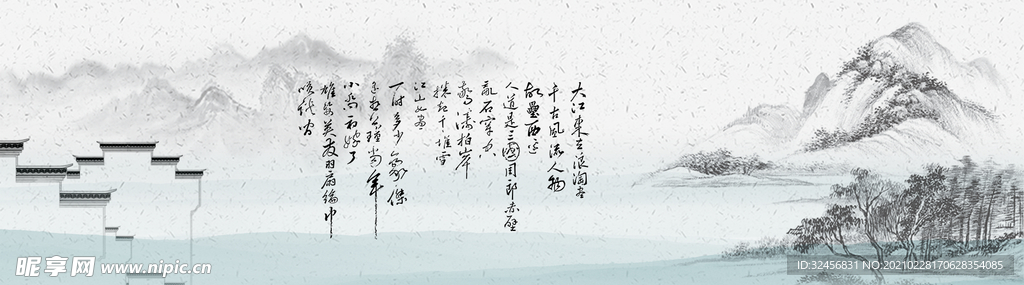 大江東去浪淘尽
千古風流人物
故壘西边
人道是三國周郎赤壁
亂石穿空
驚濤拍岸
捲起千堆雪
江山如畫
一时多少豪傑
遥想公瑾當年
小喬初嫁了
雄姿英发羽扇綸巾
昵享网 www.nipic.cn
ID:32456831 NO:20210228170628354085